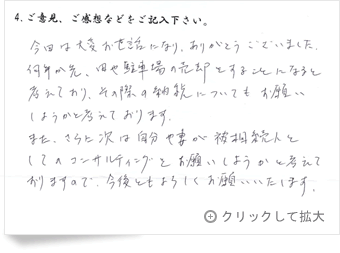 4.ご意見、ご感想などをご記入下さい。
今回は大変お世話になり、ありがとうございました。
何年か先、田や駐車場の売却をすることになると
考えており、その際の納税についてもお願い
しようかと考えております。
また、さらに次は自分や妻が被相続人と
してのコンサルティングをお願いしようかと考えて
おりますので、今後ともよろしくお願いいたします。
クリックして拡大